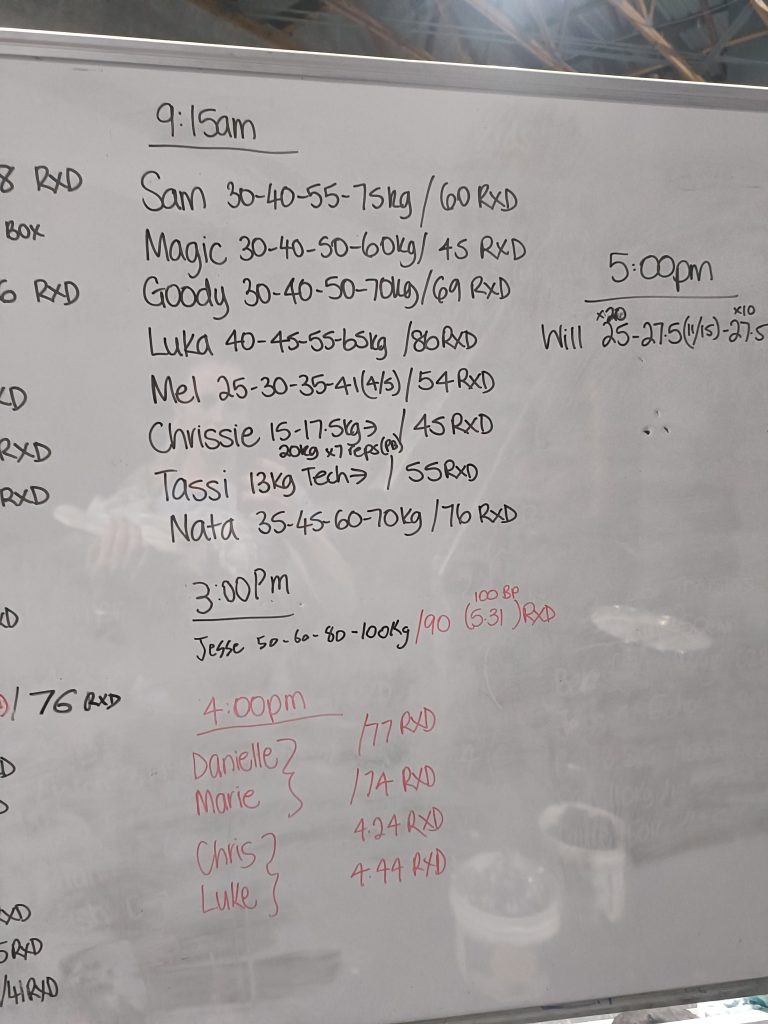 8 RXD
BOX
6 RXD
RXD
RXD
76 RXD
5 RXD
/41 RXD
9:15am
Sam 30-40-55-75kg / 60 RXD
Magic 30-40-50-60kg / 45 RXD
Goody 30-40-50-70kg / 69 RXD
Luka 40-45-55-65kg / 86 RXD
Mel 25-30-35-41(4/5) / 54 RXD
Chrissie 15-17.5kg→ / 45 RXD
20kg x7 reps (PB)
Tassi 13kg Tech→ / 55 RXD
Nata 35-45-60-70kg / 76 RXD
3:00pm
100 BP
Jesse 50-60-80-100kg / 90 (5.31) RXD
4:00pm
Danielle } /77 RXD
Marie } /74 RXD
Chris } 4.24 RXD
Luke } 4.44 RXD
5:00pm
x20 x10
Will 25-27.5(11/15)-27.5